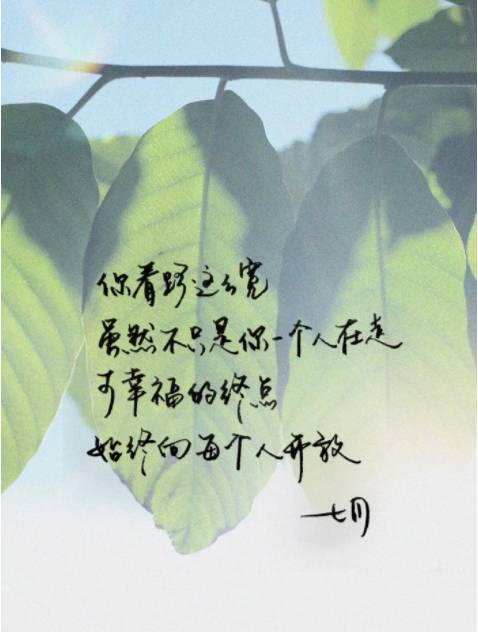 你看路这么宽
虽然不只是你一个人在走
可幸福的终点
始终向每个人开放
—七月